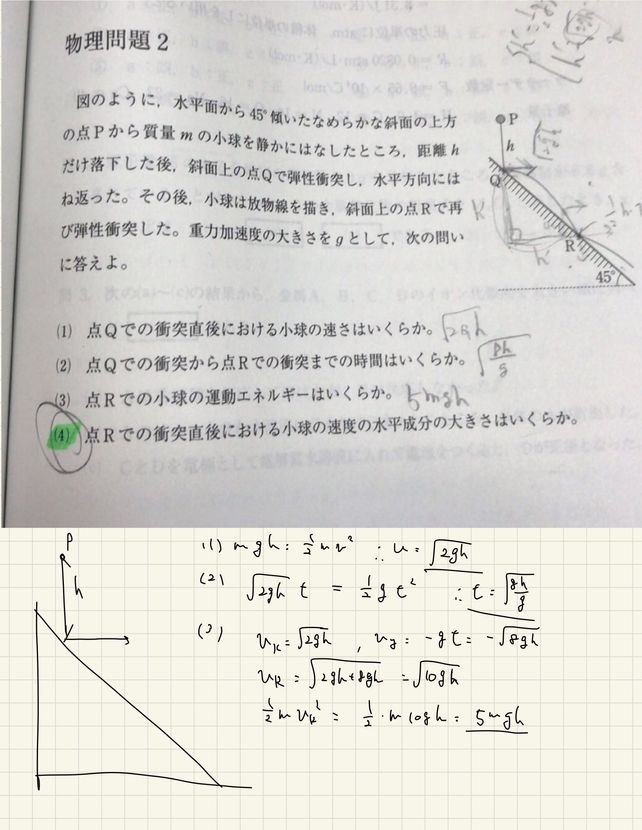 物理問題 2
図のように，水平面から 45°傾いたなめらかな斜面の上方
の点 P から質量 m の小球を静かにはなしたところ，距離 h
だけ落下した後，斜面上の点 Q で弾性衝突し，水平方向には
ね返った。その後，小球は放物線を描き，斜面上の点 R で再
び弾性衝突した。重力加速度の大きさを g として，次の問い
に答えよ。
P
h
Q
R
45°
(1) 点 Q での衝突直後における小球の速さはいくらか。√2gh
(2) 点 Q での衝突から点 R での衝突までの時間はいくらか。√8h/g
(3) 点 R での小球の運動エネルギーはいくらか。5mgh
(4) 点 R での衝突直後における小球の速度の水平成分の大きさはいくらか。
P
h
(1) mgh = 1/2 mv² ∴ v = √2gh
(2) √2gh t = 1/2 g t² ∴ t = √8h/g
(3) vx = √2gh , vy = -gt = -√8gh
vR = √2gh+8gh = √10gh
1/2 m vR² = 1/2 · m 10gh = 5mgh